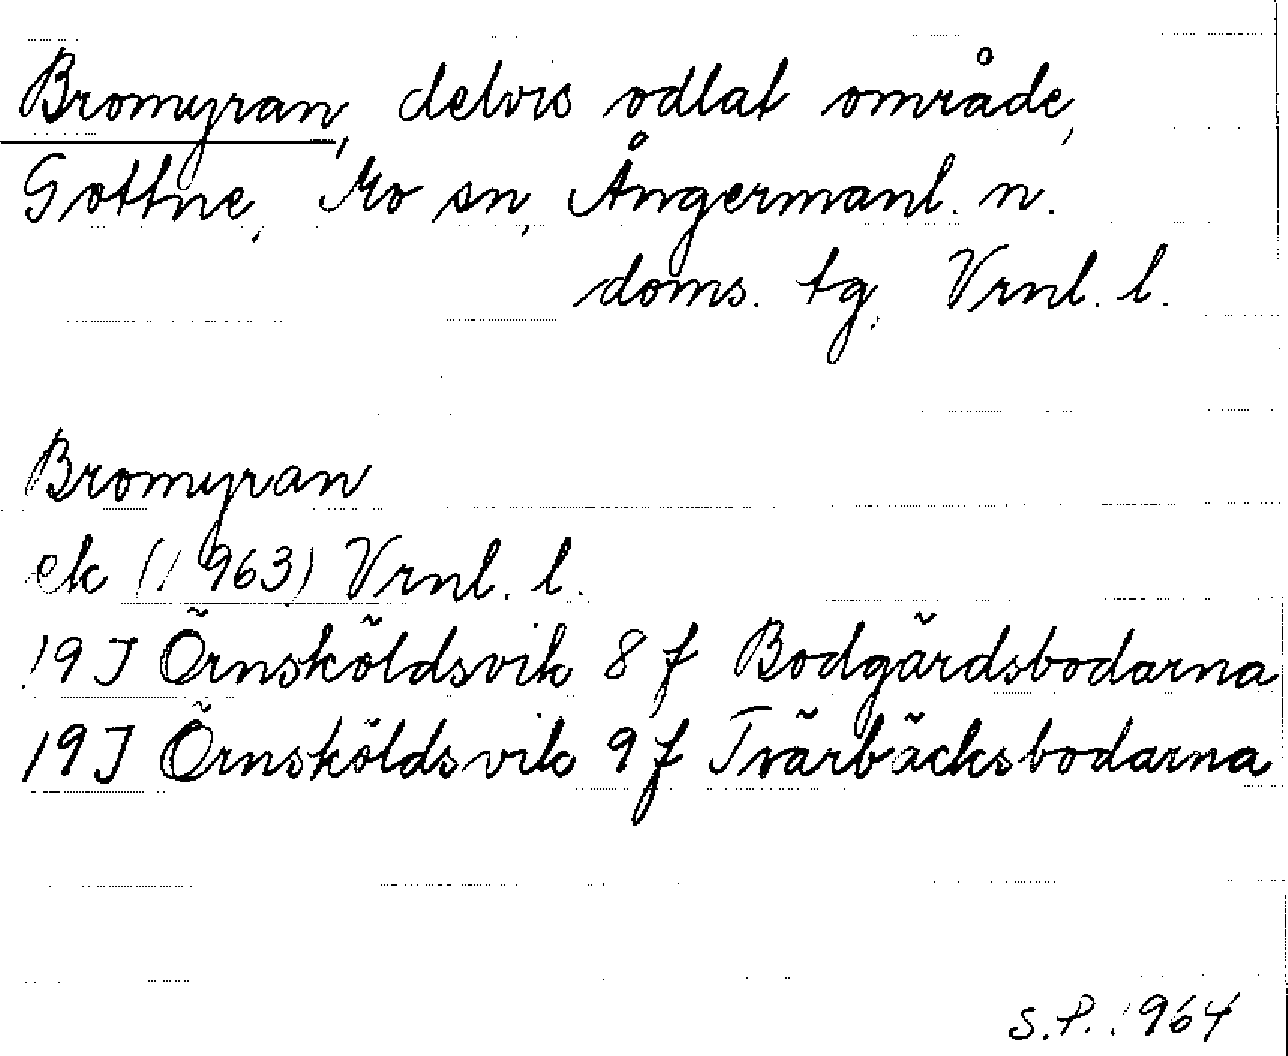 Bromyran, delvis odlat område,
Gottne, Mo sn, Ångermanl. n.
doms. tg. Vrnl. l.
Bromyran
ek (1963) Vrnl. l.
19J Örnsköldsvik 8f Bodgärdsbodarna
19J Örnsköldsvik 9f Tvärbäcksbodarna
S.P. 1964